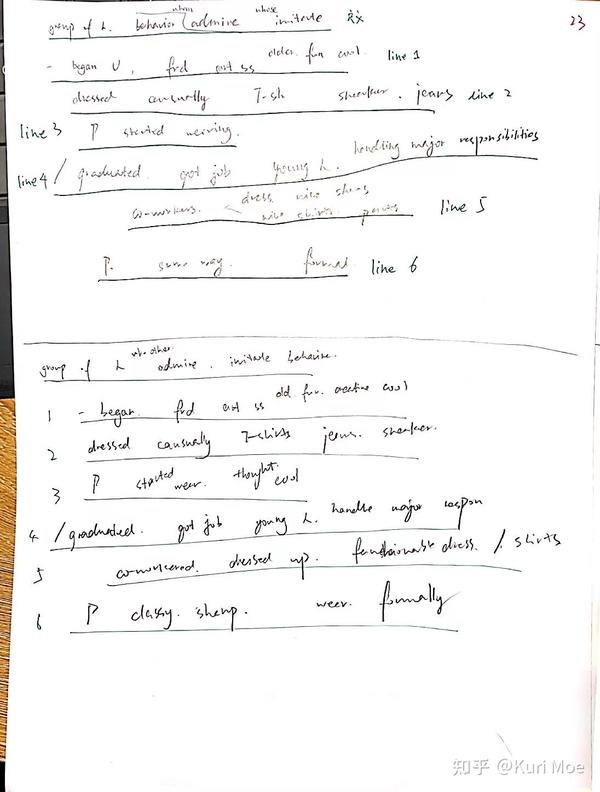 whom whose
group of L. behavior admire imitate 反义 23
older. fun cool.
- began U, frd art ss line 1
dressed causually T-sh sneaker. jeans line 2
line 3 P started wearing.
handling major responsibilities
line 4 / graduated. got job young L.
dress. nice shoes
co-workers. < nice shirts. pants line 5
P. same way. formal line 6
who other
group of L admire. imitate behavior.
old. fun. creative cool
1 - began. frd art ss
2 dressed causually T-shirts jeans. sneaker.
3 P started wear. thought cool
4 / graduated. got job young L. handle major respon
5 co-workered. dressed up. dress. / shirts
6 P classy. sharp. wear. formally
知乎 @Kuri Moe